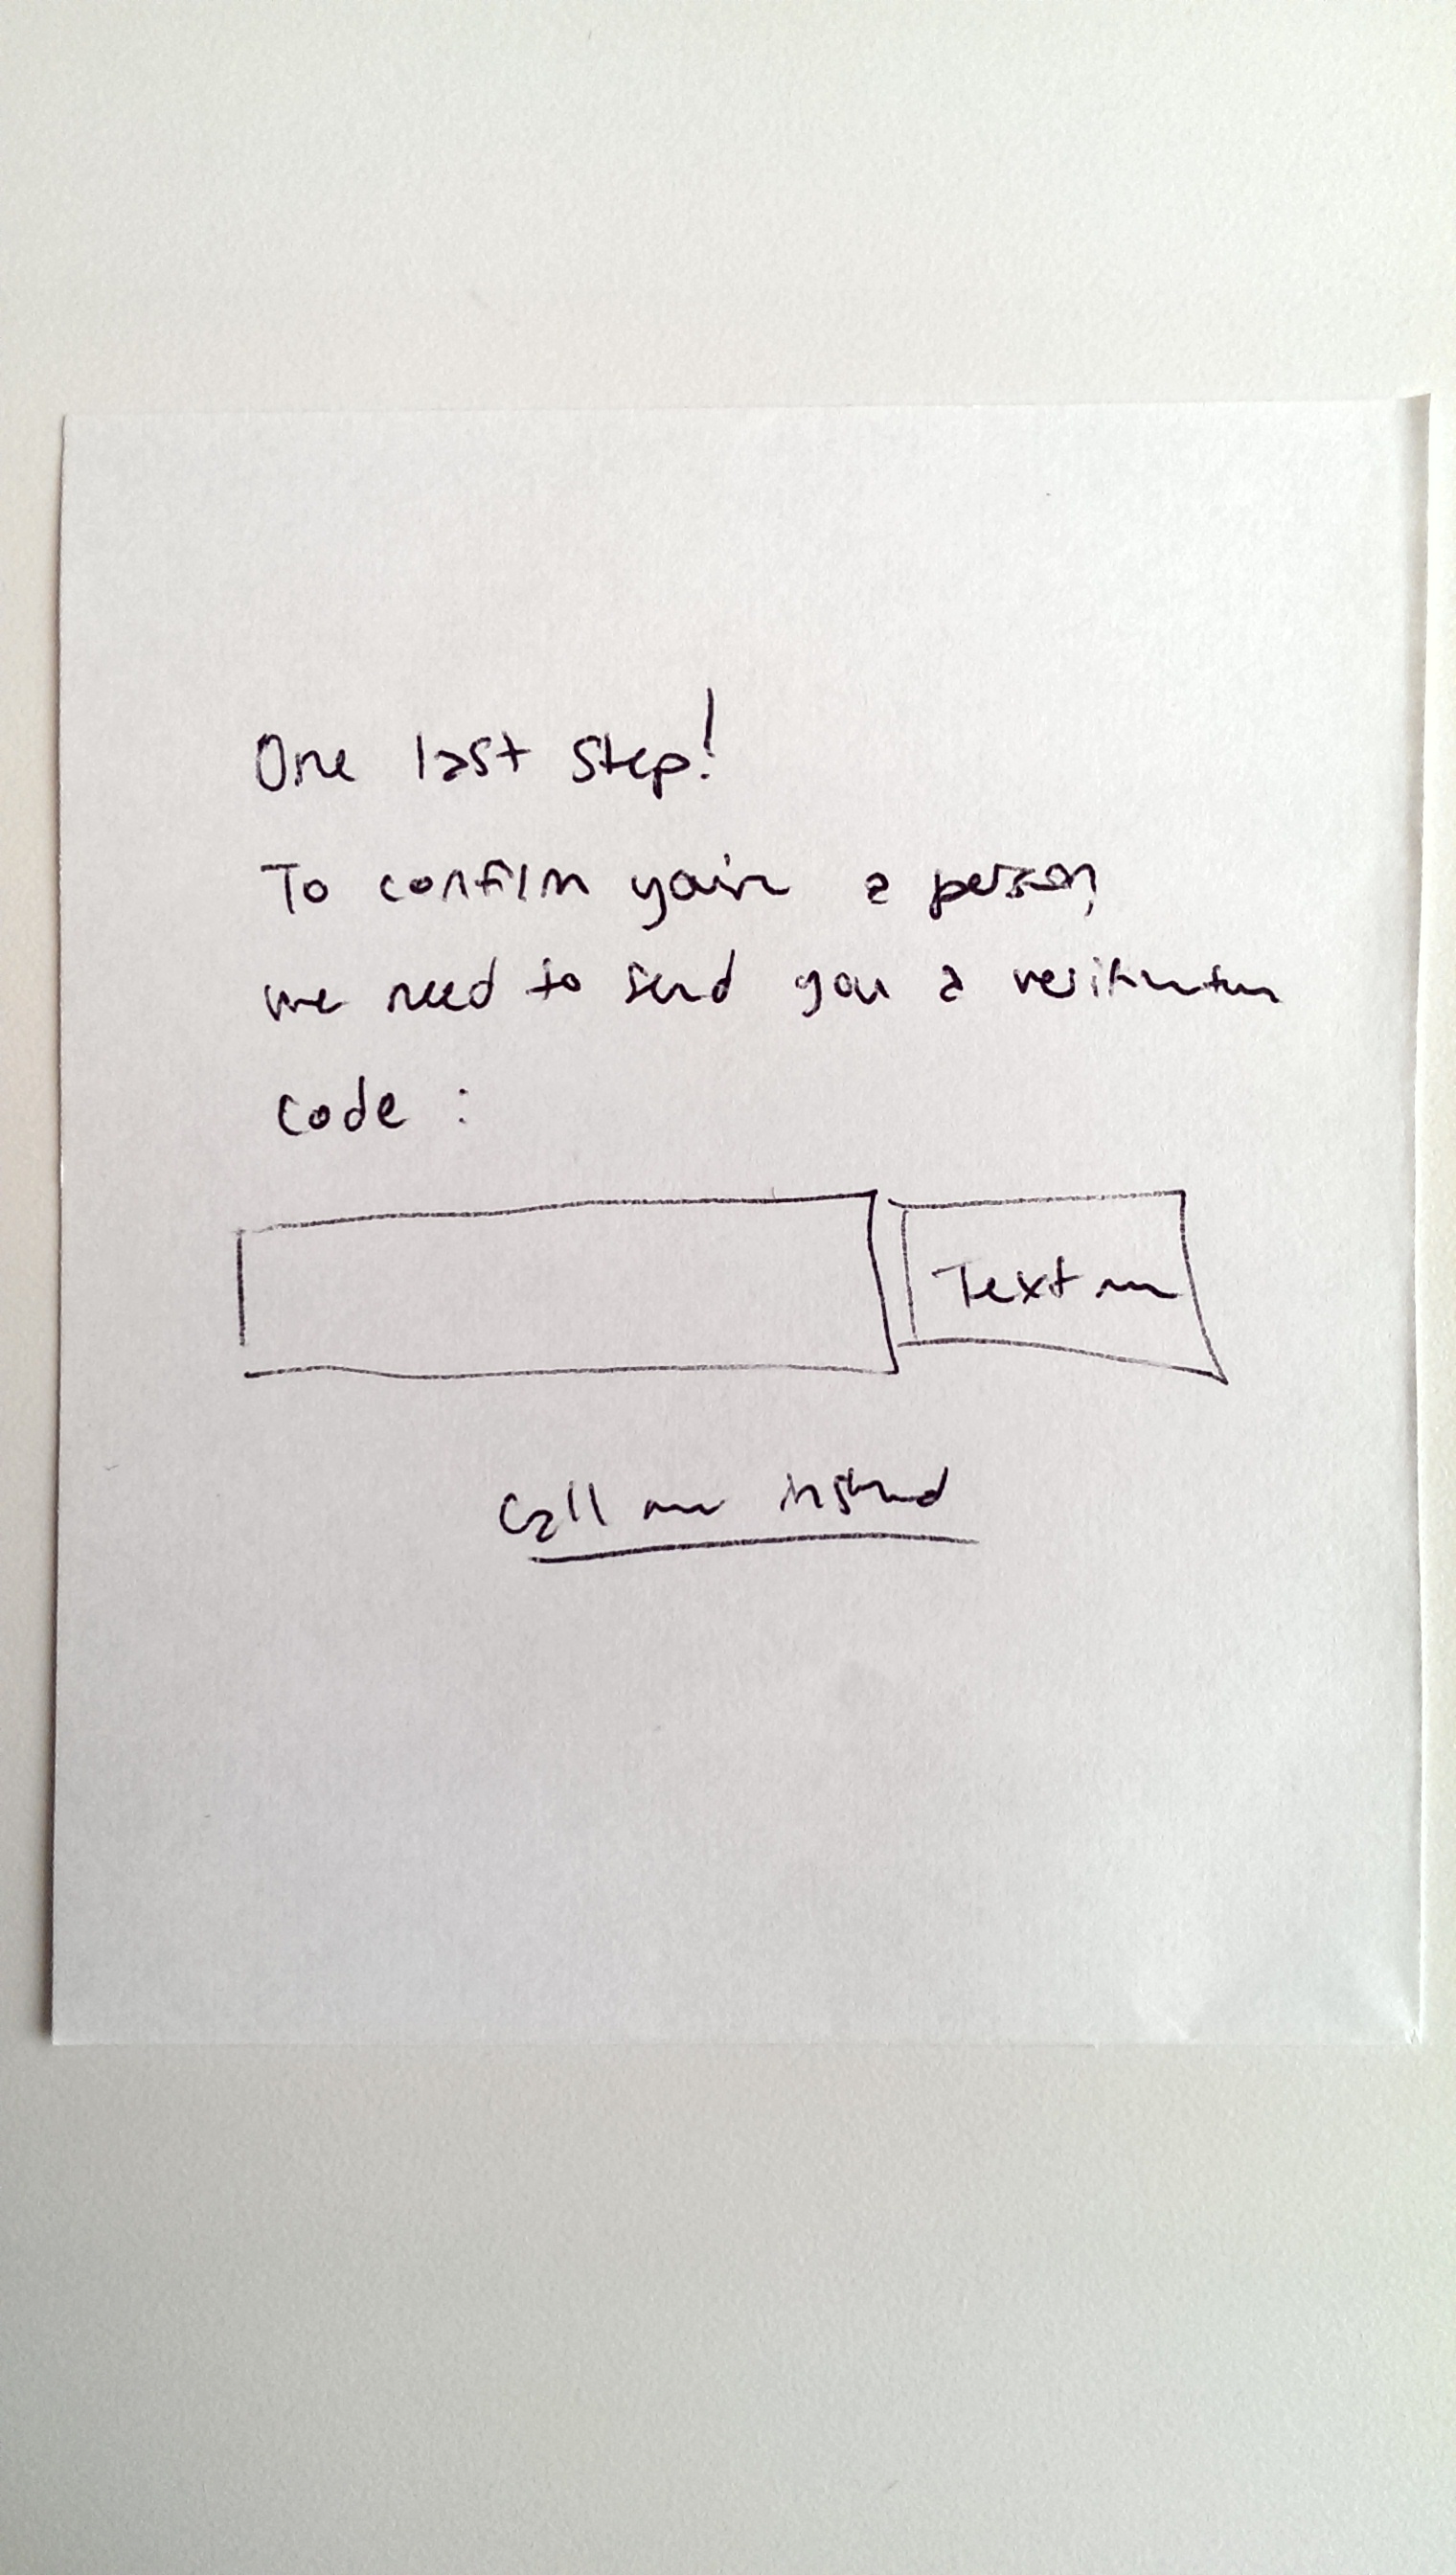 One last step!
To confirm you're a person,
we need to send you a verification
code :
Text me
Call me instead